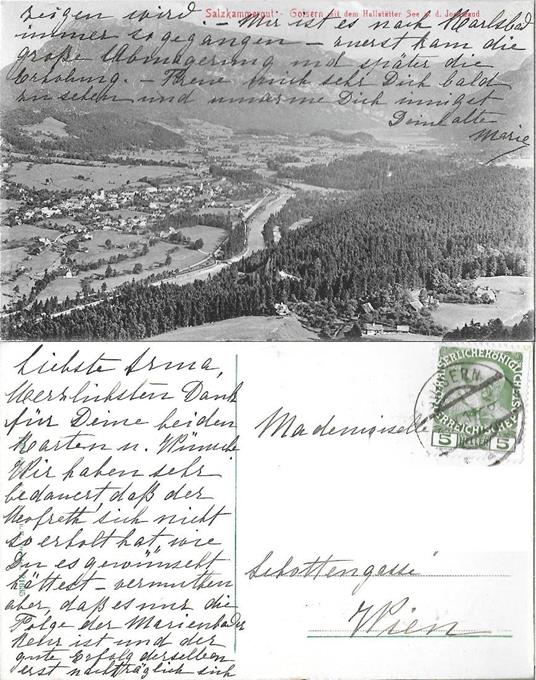 Liebste Irma,
Herzlichsten Dank
für Deine beiden
Karten u. Wünsche
Wir haben sehr
bedauert daß der
sich nicht
so erholt hat wie
Du es gewünscht
hättest – vermuthen
aber, daß es nur die
Folge der Marienbader
Kehr ist und der
gute Erfolg derselben
erst nachträglich sich
Mademoiselle
Schottengasse
Wien
5 HELLER 5
zeigen wird. – Mir ist es nach Karlsbad
immer so gegangen – zuerst kam die
große Abmagerung und später die
Erholung. – Freue mich sehr Dich bald
zu sehen und umarme Dich innigst
Deine alte
Marie
Salzkammergut. – Goisern mit dem Hallstätter See u. d.